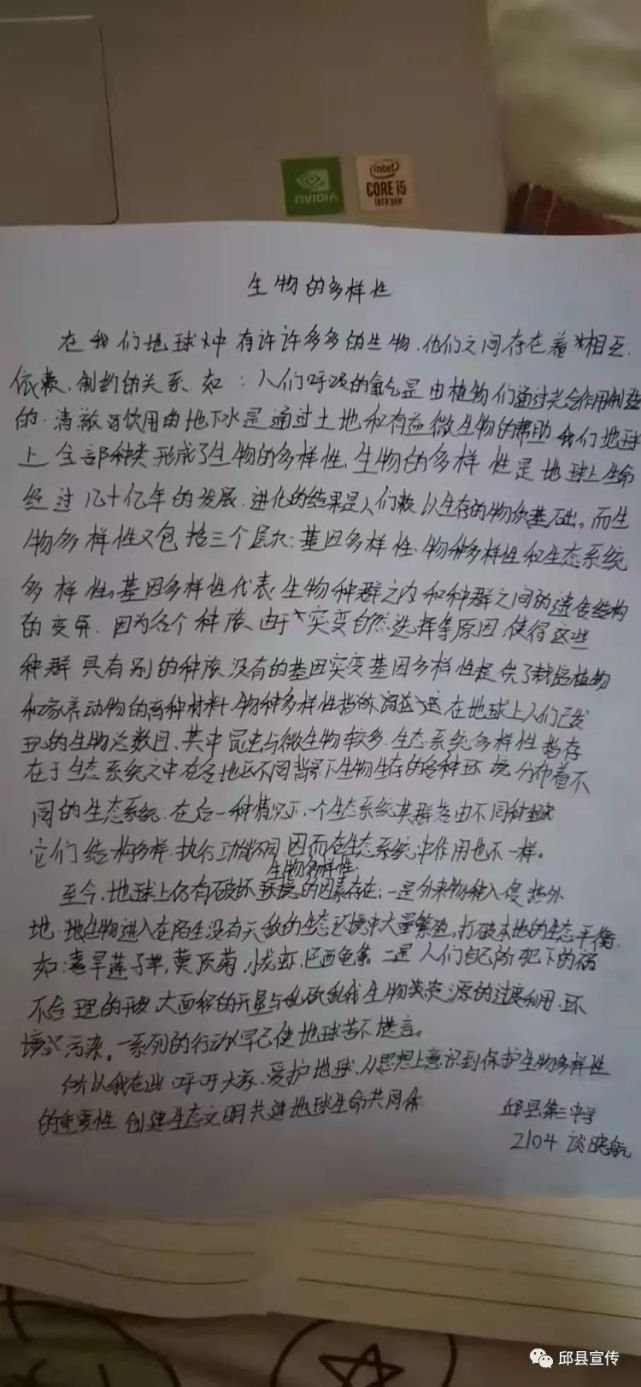 NVIDIA
intel
CORE i5
10TH GEN
生物的多样性
在我们地球中有许许多多的生物,他们之间存在着相互
依赖、制约的关系。如:人们呼吸的氧气是由植物们通过光合作用制造
的。清澈可饮用的地下水是通过土地和有益微生物的帮助。我们地球
上全部种类形成了生物的多样性,生物的多样性是地球上生命
经过几十亿年的发展、进化的结果是人们赖以生存的物质基础。而生
物多样性又包括三个层次:基因多样性、物种多样性和生态系统
多样性。基因多样性代表生物种群之内和种群之间的遗传结构
的变异。因为各个种族、由于突变自然选择等原因使得这些
种群具有别的种族没有的基因突变基因多样性提供了栽培植物
和家养动物的育种材料。物种多样性指 在地球上人们已发
现的生物总数目,其中昆虫与微生物较多。生态系统多样性指存
在于生态系统之中在各地区不同背景下生物生存的各种环境分布着不
同的生态系统。在后一种情况下,一个生态系统其群落由不同种
它们结构多样,执行功能不同,因而在生态系统中作用也不一样。
生物多样性
至今,地球上仍有破坏 的因素存在:一是外来物种入侵
地,生物进入在陌生没有天敌的生态环境中大量繁殖,打破本地的生态平衡
如:喜旱莲子草,黄顶菊,小龙虾,巴西龟等。二是人们自己所犯下的祸
不合理的开发,大面积的开垦与乱砍乱伐生物资源的过度利用、环
境 污染。一系列的行动早已使地球苦不堪言。
所以我在此呼吁大家,爱护地球,从思想上意识到保护生物多样性
的重要性 创建生态文明共建地球生命共同体
邱县第三中学
2104 谈 航
邱县宣传